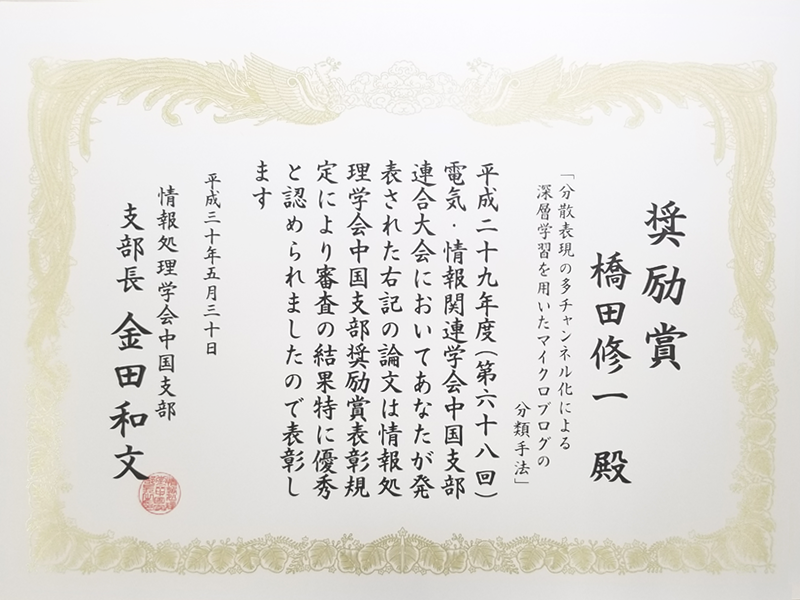 奨励賞
橋田修一 殿
「分散表現の多チャンネル化による
深層学習を用いたマイクロブログの
分類手法」
平成二十九年度(第六十八回)
電気・情報関連学会中国支部
連合大会においてあなたが発
表された右記の論文は情報処
理学会中国支部奨励賞表彰規
定により審査の結果特に優秀
と認められましたので表彰し
ます
平成三十年五月三十日
情報処理学会中国支部
支部長 金田和文